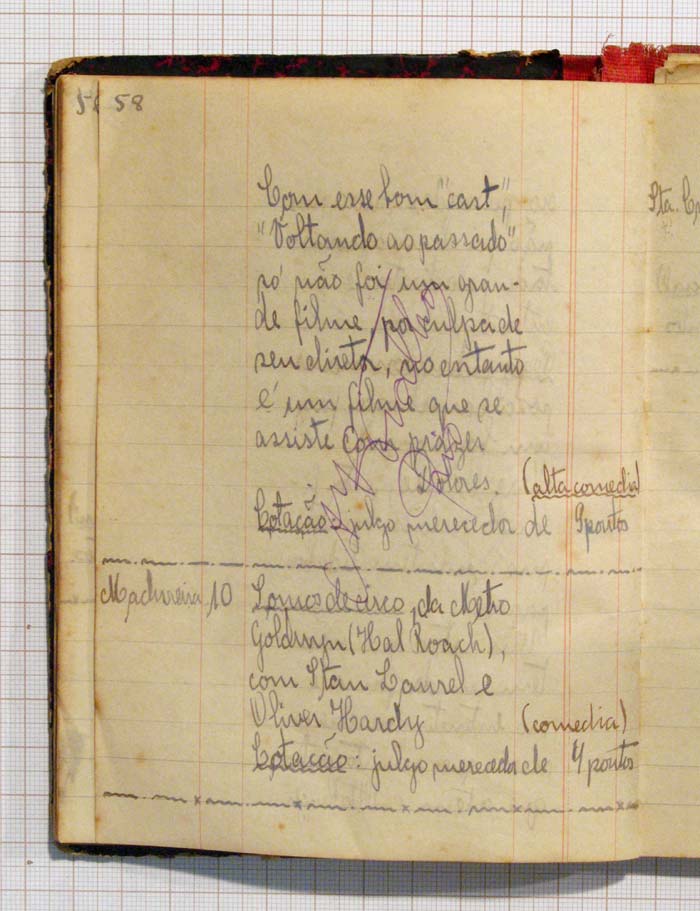 58 58
Com esse bom "cast",
"Voltando ao passado"
só não foi um gran-
de filme, por culpa de
seu diretor, no entanto
é um filme que se
assiste com prazer
Dolores. (alta comedia)
Cotação: julgo merecedor de 9 pontos
Madureira, 10 Loucos de circo, da Metro
Goldwyn (Hal Roach),
com Stan Laurel e
Oliver Hardy (comedia)
Cotação: julgo merecedor de 4 pontos
Sta.